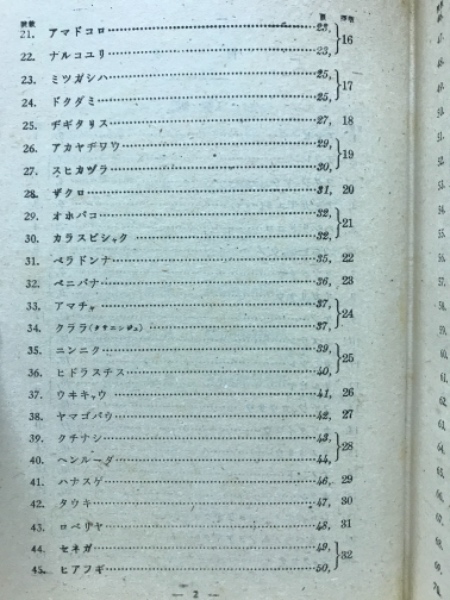 頁
21. アマドコロ 23, 16
22. ナルコユリ 23,
23. ミツガシハ 25, 17
24. ドクダミ 25,
25. ヂギタリス 27, 18
26. アカヤヂワウ 29, 19
27. スヒカヅラ 30,
28. ザクロ 31, 20
29. オホバコ 32, 21
30. カラスビシャク 32,
31. ベラドンナ 35, 22
32. ベニバナ 36, 23
33. アマチャ 37, 24
34. クララ 37,
35. ニンニク 39, 25
36. ヒドラスチス 40,
37. ウキキャウ 41, 26
38. ヤマゴバウ 42, 27
39. クチナシ 43, 28
40. ヘンルーダ 44,
41. ハナスゲ 46, 29
42. タウキ 47, 30
43. ロベリヤ 48, 31
44. セネガ 49, 32
45. ヒアフギ 50,
— 2 —